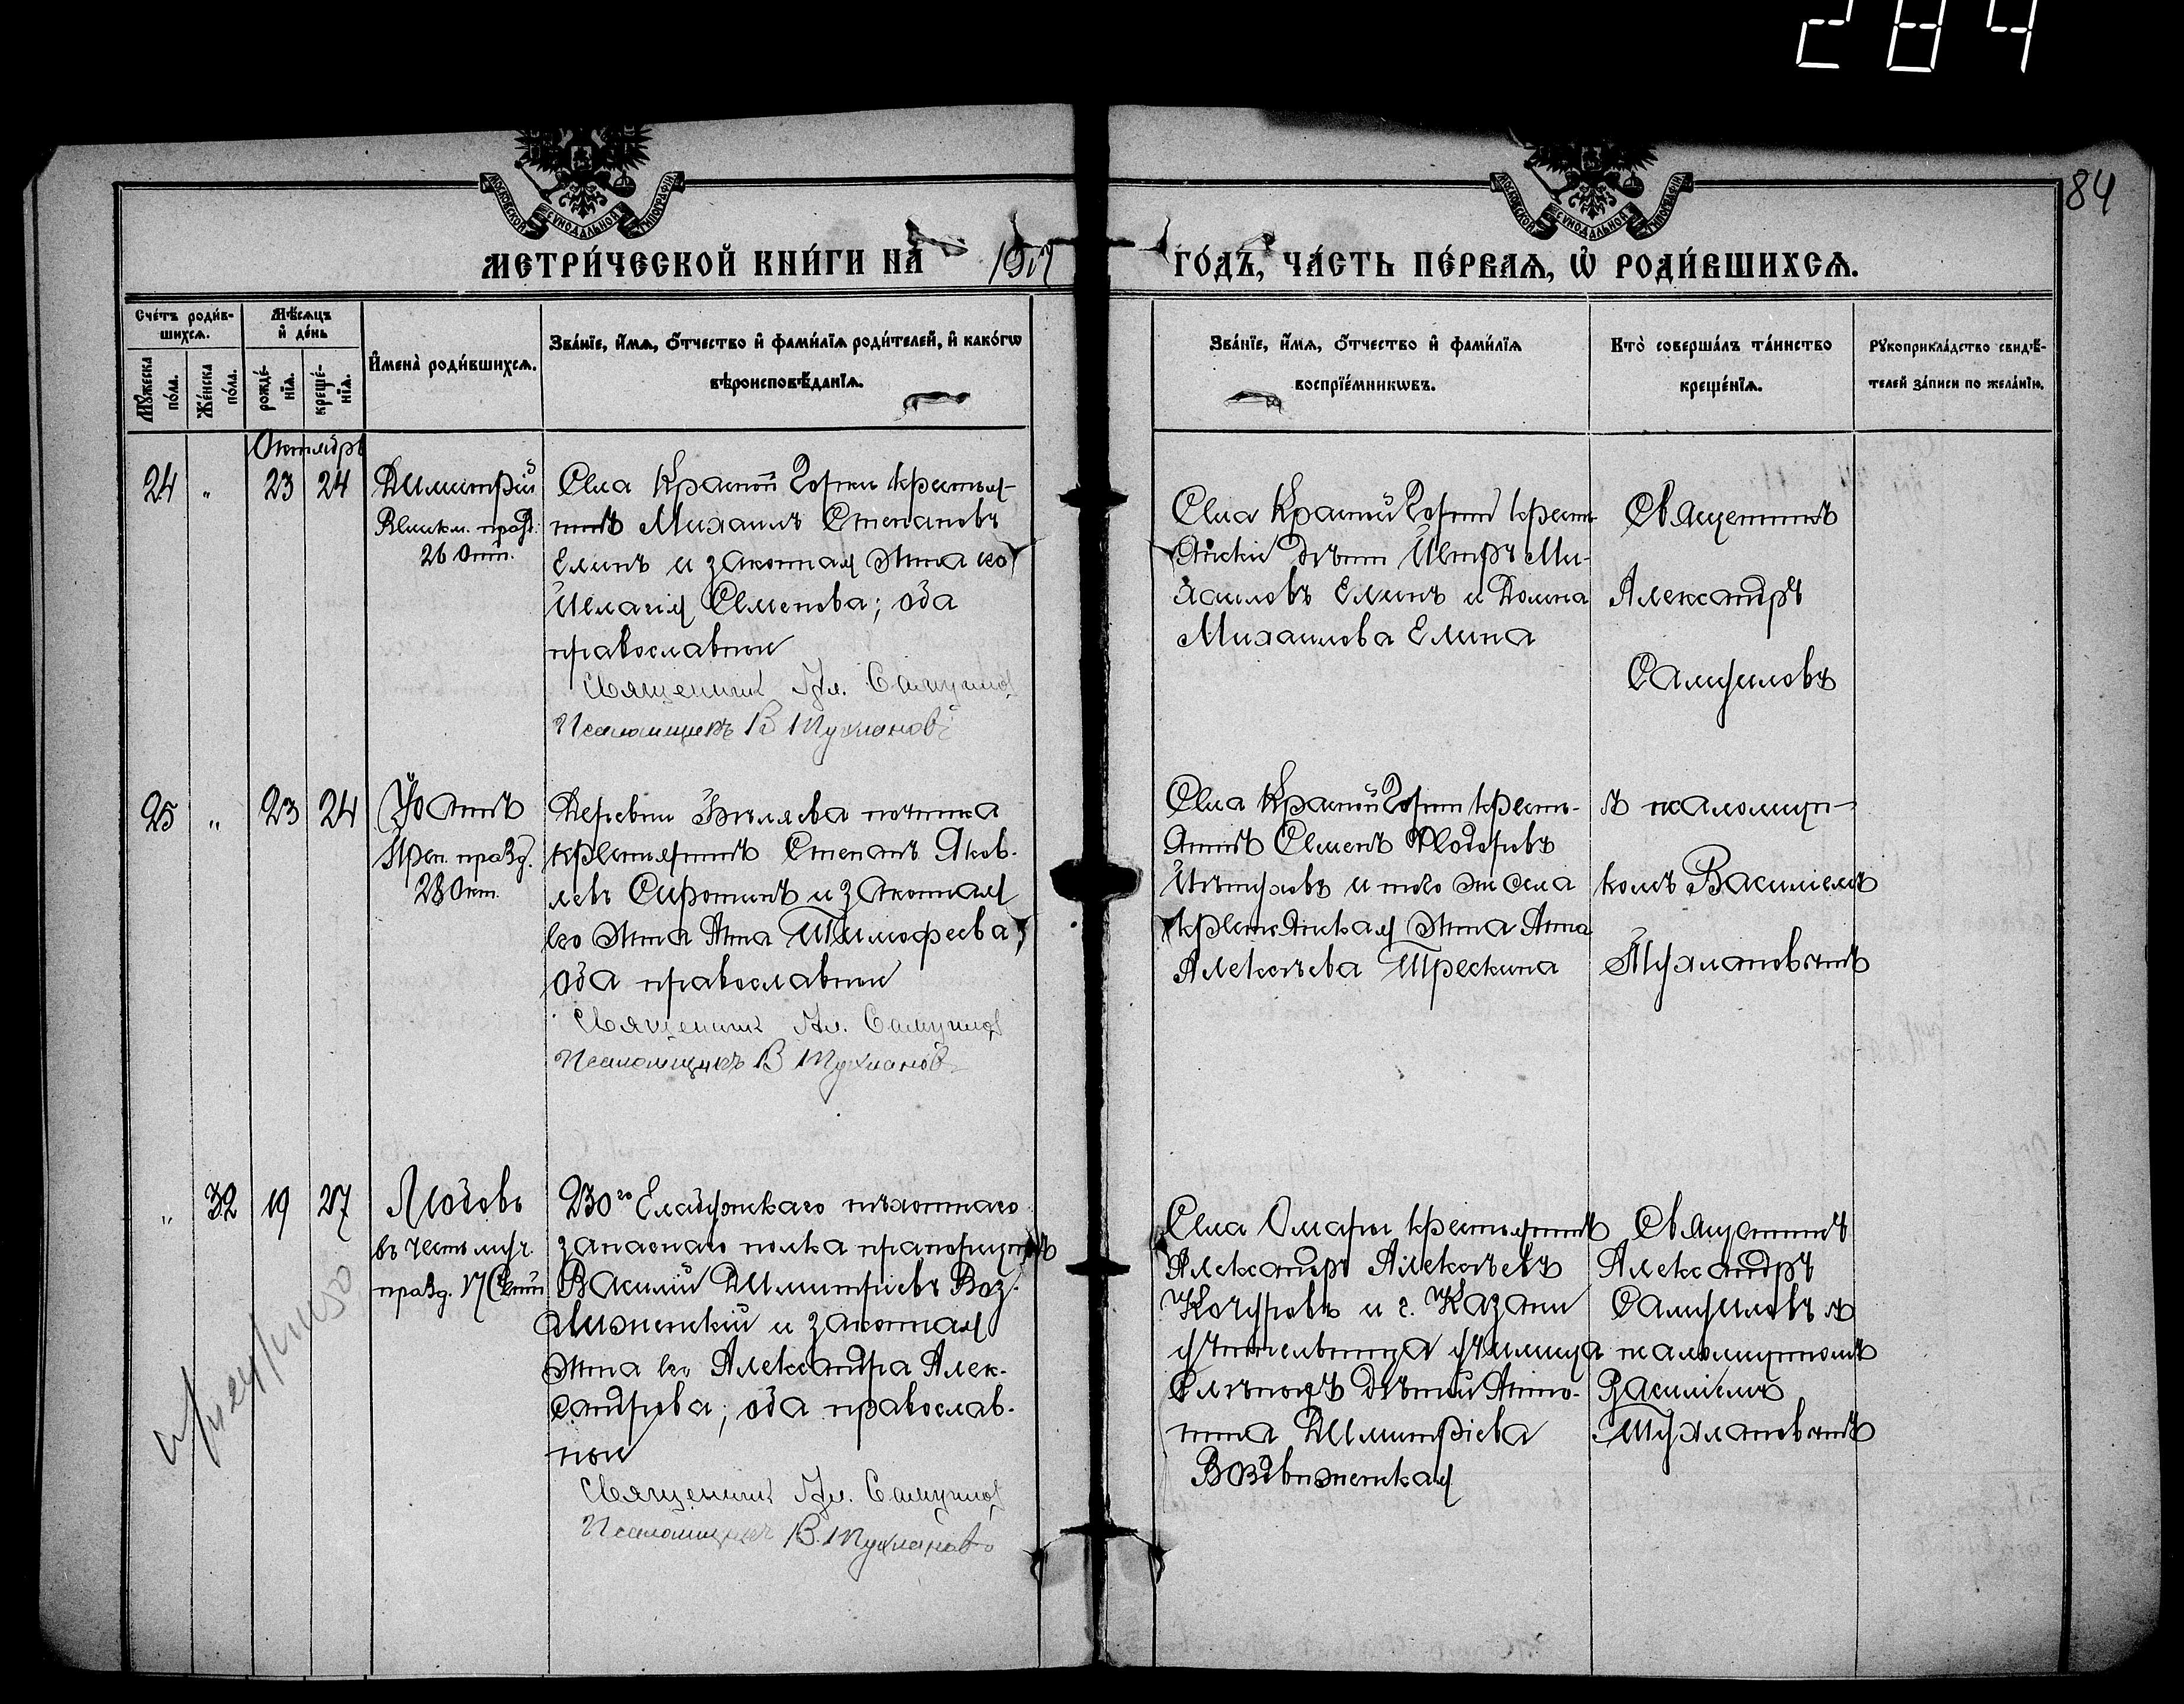 284
84
МОСКОВСКОЙ СѴНОДАЛЬНОЙ ТИПОГРАФІИ
МОСКОВСКОЙ СѴНОДАЛЬНОЙ ТИПОГРАФІИ
МЕТРИ́ЧЕСКОЙ КНИ́ГИ НА 1917 ГО́ДЪ, ЧА́СТЬ ПЕ́РВАѦ, Ѡ҆ РОДИ́ВШИХСѦ.
Сче́тъ роди́в-
шихсѧ.
Мѣ́сѧцъ
и҆ де́нь
Мꙋ́жеска
по́ла.
Же́нска
по́ла.
рожде́-
нїѧ.
креще́-
нїѧ.
И҆мена̀ роди́вшихсѧ.
Зва́нїе, и҆́мѧ, ѻ҆́тчество и҆ фами́лїѧ роди́телей, и҆ како́гѡ
вѣроисповѣ́данїѧ.
Зва́нїе, и҆́мѧ, ѻ҆́тчество и҆ фами́лїѧ
воспрїе́мникѡвъ.
Кто̀ соверша́лъ та́инство
креще́нїѧ.
Рꙋкоприкла́дство свидѣ́-
телей за́писи по жела́нїю.
Октябрь
24 " 23 24
Димитрій
Великм. празд.
26 Окт.
Села Красной Горки крестья-
нинъ Михаилъ Степановъ
Елинъ и законная жена его
Пелагія Семенова; оба
православные
Священникъ Ал. Самуилов
Псаломщикъ В Тухлановъ
Села Красной Горки крестъ-
янскіе дѣти Петръ Ми-
хаиловъ Елинъ и Домна
Михаилова Елина
Священникъ
Александръ
Самуиловъ
25 " 23 24
Іоаннъ
Преп. празд.
28 Окт.
Деревни Бѣляева починка
крестьянинъ Степанъ Яков-
левъ Сиротинъ и законная
его жена Анна Тимофеева;
оба православные
Священникъ Ал. Самуилов
Псаломщикъ В Тухлановъ
Села Красной Горки кресть-
янинъ Семенъ Ѳодоровъ
Пѣтуховъ и того же села
крестьянская жена Анна
Алексѣева Трескина
съ псаломщи-
комъ Василіемъ
Тухлановымъ
" 32 19 27
Любовь
въ честь муч.
празд. 17 Сент.
230го Елабужскаго пѣхотнаго
запаснаго полка прапорщикъ
Василій Димитріевъ Воз-
движенскій и законная
жена его Александра Алек-
сандрова; оба православ-
ные
Священникъ Ал. Самуилов
Псаломщикъ В. Тухлановъ
Села Омары крестьянинъ
Александръ Алексѣевъ
Кочуровъ и г. Казани
учительница училища
слѣпыхъ дѣтей Анто-
нина Димитріева
Воздвиженская
Священникъ
Александръ
Самуиловъ съ
псаломщикомъ
Василіемъ
Тухлановымъ